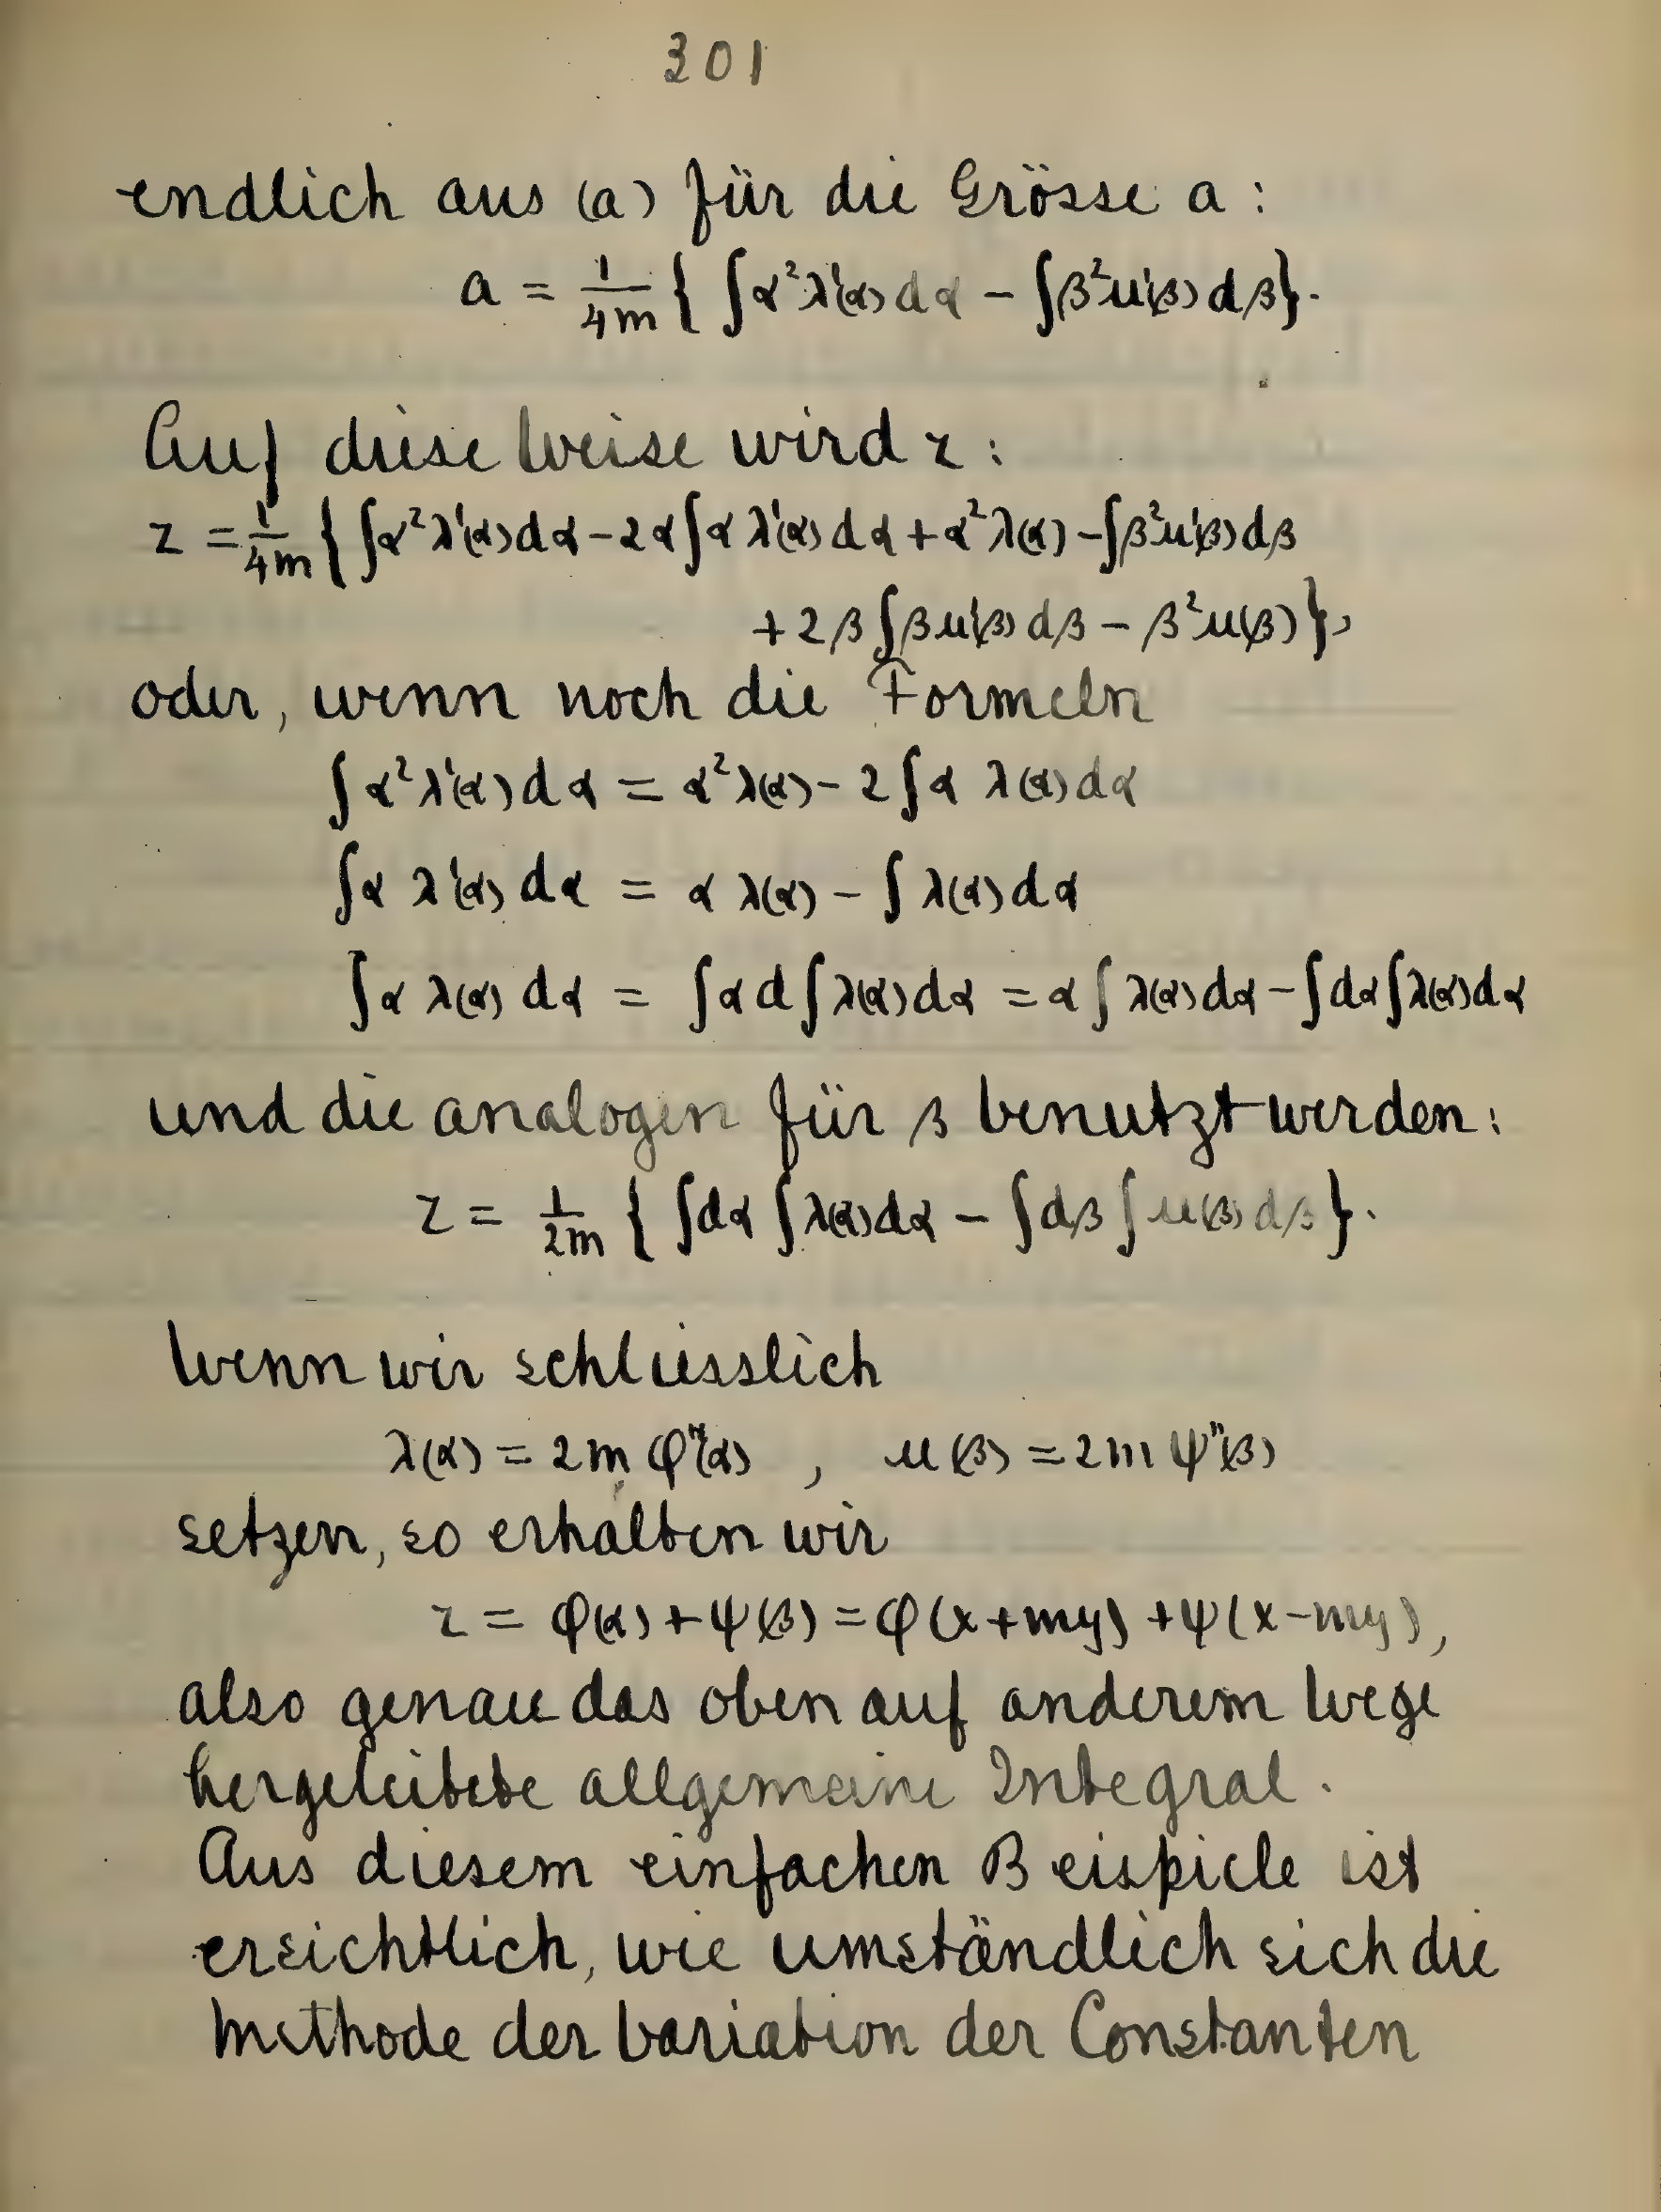 301
endlich aus (a) für die Grösse a:
a = 1/4m { ∫α²λ'(α)dα − ∫β²μ'(β)dβ}.
Auf diese Weise wird z:
z = 1/4m { ∫α²λ'(α)dα − 2α∫α λ'(α)dα + α²λ(α) − ∫β²μ'(β)dβ
+ 2β∫βμ'(β)dβ − β²μ(β)},
oder, wenn noch die Formeln
∫α²λ'(α)dα = α²λ(α) − 2∫α λ(α)dα
∫α λ'(α)dα = α λ(α) − ∫λ(α)dα
∫α λ(α)dα = ∫α d∫λ(α)dα = α∫λ(α)dα − ∫dα∫λ(α)dα
und die analogen für β benutzt werden:
z = 1/2m { ∫dα∫λ(α)dα − ∫dβ∫μ(β)dβ}.
Wenn wir schliesslich
λ(α) = 2m φ"(α) , μ(β) = 2m ψ"(β)
setzen, so erhalten wir
z = φ(α) + ψ(β) = φ(x+my) + ψ(x−my),
also genau das oben auf anderem Wege
hergeleitete allgemeine Integral.
Aus diesem einfachen Beispiele ist
ersichtlich, wie umständlich sich die
Methode der Variation der Constanten